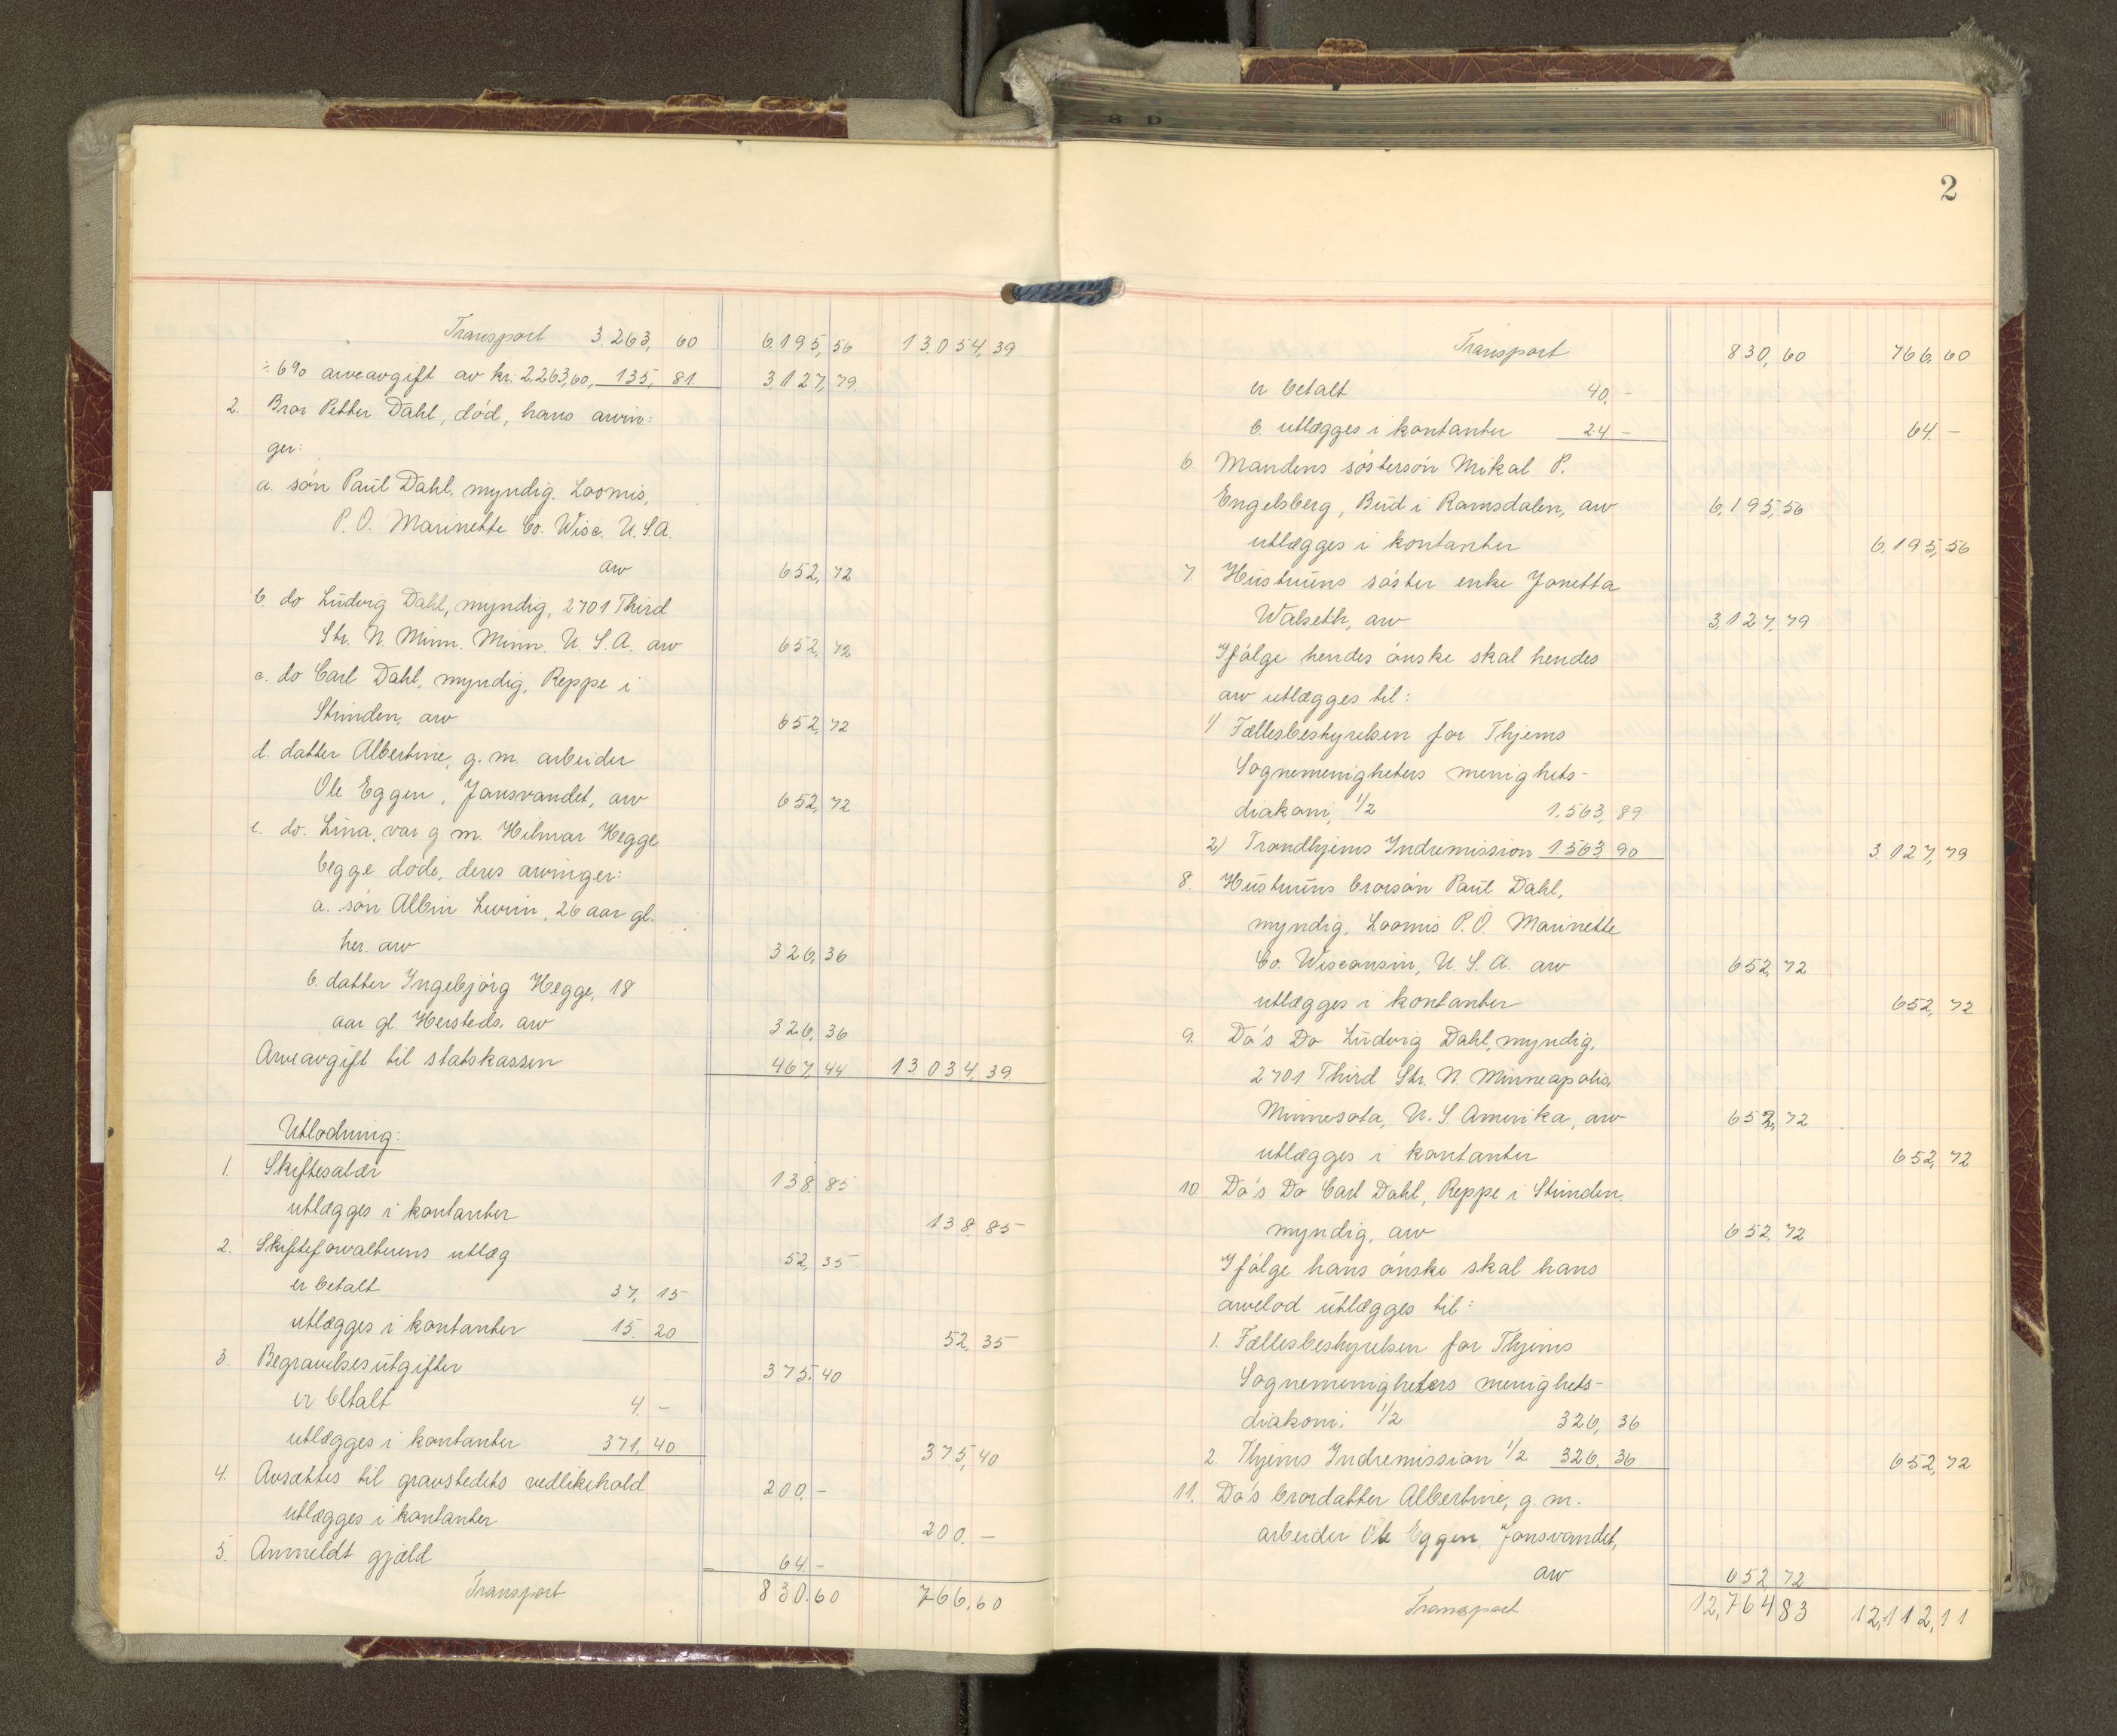 Transport 3.263, 60 6.195, 56 13.054, 39
÷ 6% arveavgift av kr. 2.263,60, 135, 81. 3.127, 79.
2. Bror Petter Dahl, död, hans arvin:
ger:
a. sön Paul Dahl, myndig. Loomis,
P. O. Marinette Co. Wisc. U. S. A.
arv 652, 72
b. do Ludvig Dahl, myndig, 2701 Third
Str. N. Minn. Minn. U. S. A. arv 652, 72
c. do Carl Dahl, myndig, Reppe i
Strinden, arv 652, 72
d. datter Albertine, g. m. arbeider
Ole Eggen, Jonsvandet, arv 652, 72
e. do. Lina, var g. m. Hilmar Hegge
begge döde, deres arvinger:
a. sön Albin Levin, 26 aar gl.
her. arv 326, 36
b. datter Ingebjörg Hegge, 18
aar gl. Hersteds. arv 326, 36
Arveavgift til statskassen 467, 44 13.034, 39.
Utlodning:
1. Skiftesalær 138, 85
utlægges i kontanter 138, 85
2. Skifteforvalterens utlæg 52, 35
er betalt 37, 15
utlægges i kontanter 15, 20 52, 35
3. Begravelsesutgifter 375, 40
er betalt 4. -
utlægges i kontanter 371, 40 375, 40
4. Avsættes til gravstedets vedlikehold 200. -
utlægges i kontanter 200. -
5. Anmeldt gjæld 64 -
Transport 830. 60 766. 60
2
Transport 830, 60 766, 60
er betalt 40. -
b. utlægges i kontanter 24 - 64. -
6 Mandens söstersön Mikal P.
Engelsberg, Bud i Romsdalen, arv 6.195, 56
utlægges i kontanter 6.195, 56
7. Hustruens söster enke Jonetta
Walseth, arv 3.127, 79
Ifölge hendes önske skal hendes
arv utlægges til:
1) Fællesbestyrelsen for Thjems
Sognemenigheters menighets-
diakoni, 1/2 1.563, 89
2) Trondhjems Indremission 1.563, 90 3.127, 79
8. Hustruens brorsön Paul Dahl,
myndig, Loomis P. O. Marinette
Co. Wisconsin, U. S. A. arv 652, 72
utlægges i kontanter 652, 72
9. Do's Do Ludvig Dahl, myndig,
2701 Third Str. N. Minneapolis,
Minnesota, U. S. Amerika, arv 652, 72
utlægges i kontanter 652, 72
10. Do's Do Carl Dahl, Reppe i Strinden,
myndig, arv 652, 72
Ifölge hans önske skal hans
arvelod utlægges til:
1. Fællesbestyrelsen for Thjems
Sognemenigheters menighets-
diakoni. 1/2 326, 36
2. Thjems Indremission 1/2 326, 36 652, 72
11. Do's brordatter Albertine, g. m.
arbeider Ole Eggen, Jonsvandet,
arv 652, 72
Transport 12,764 83 12,112, 11